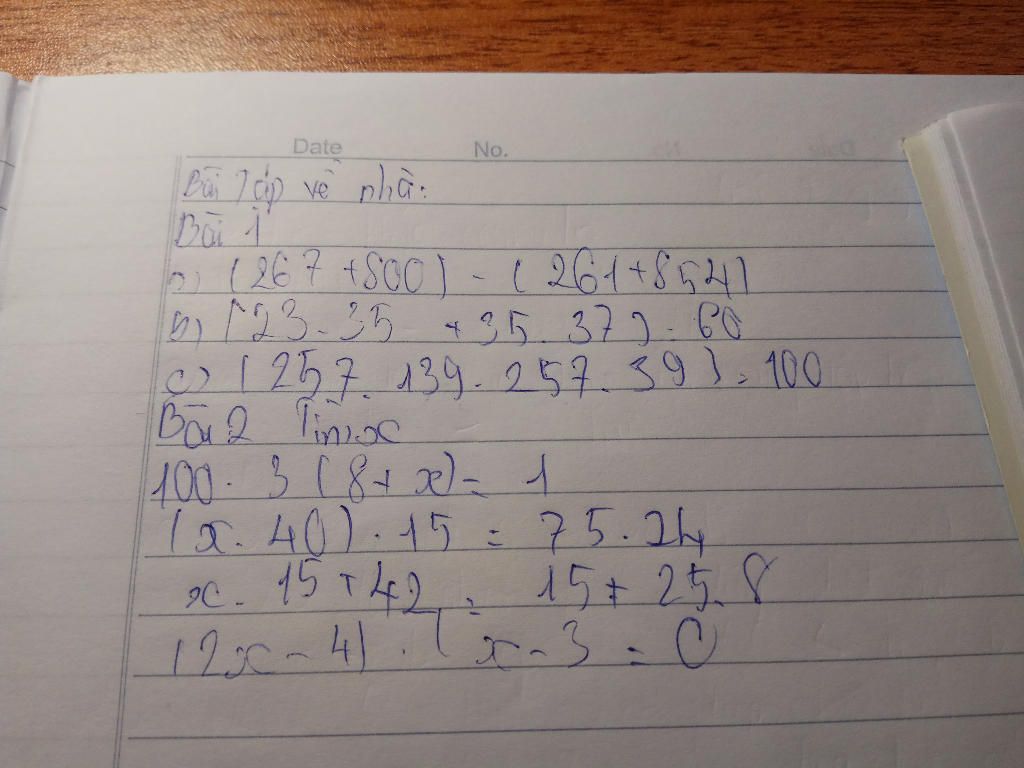 Date No.
Bài Tập về nhà:
Bài 1
a) (267 +800) - (261+854)
b) (23 - 35 + 35. 37) - 60
c) (257. 139 - 257. 39) = 100
Bài 2 Tìm x
100 - 3 (8+ x) = 1
(x - 40) . 15 = 75. 24
x - 15 + 42 = 15 + 25. 8
(2x - 4) . ( x - 3 = 0